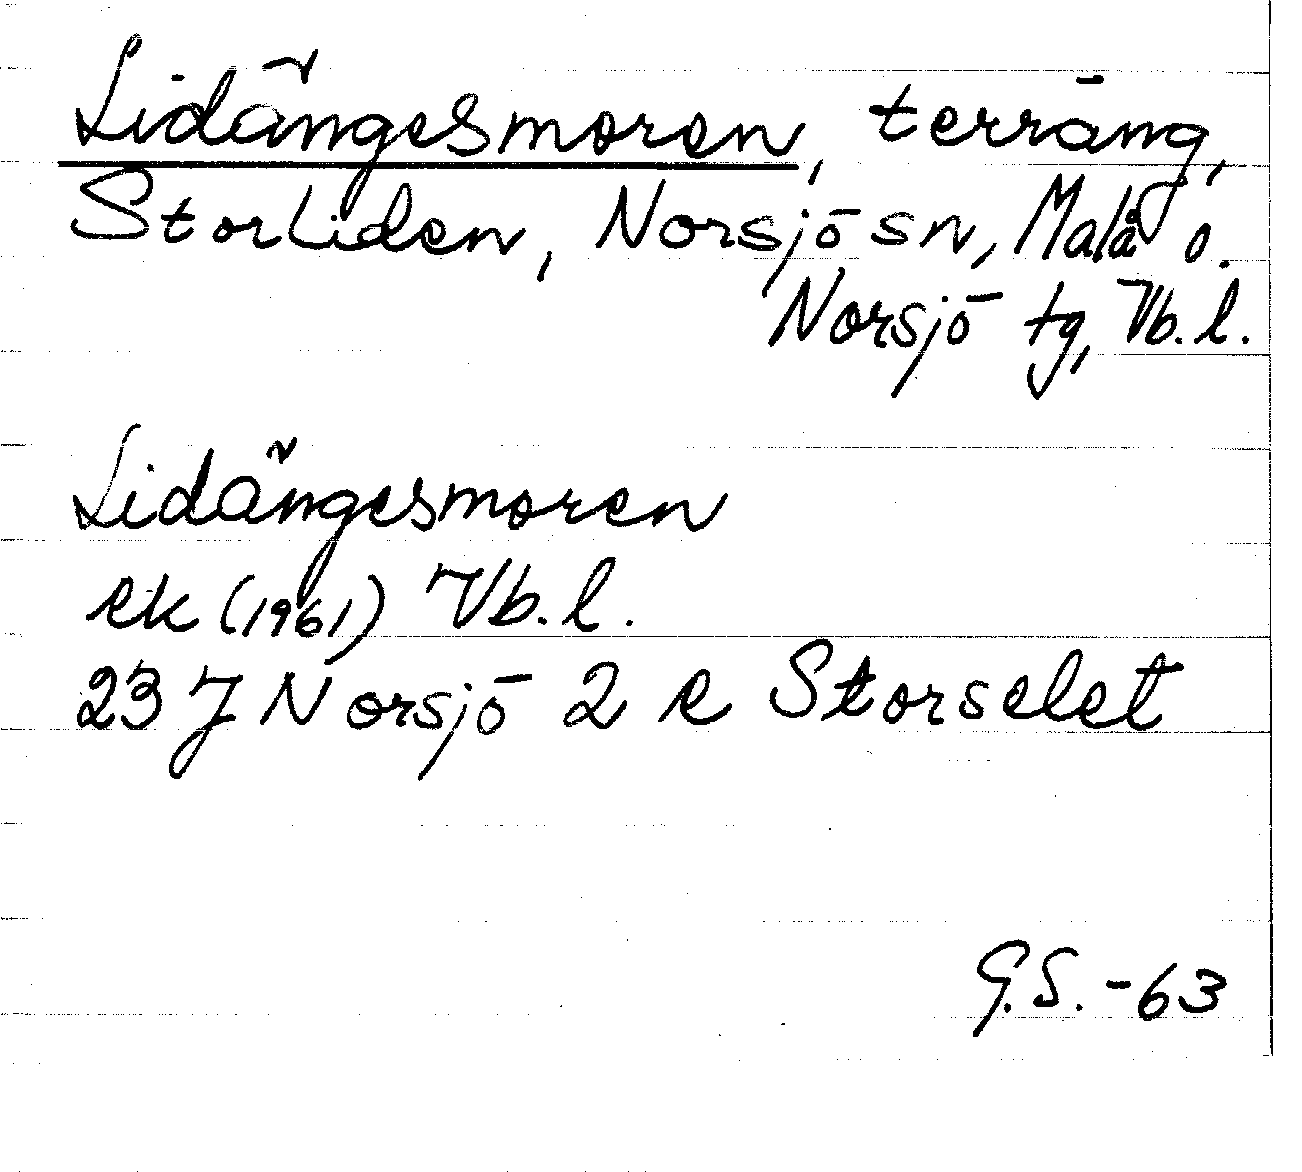 Lidängesmoren, terräng,
Storliden, Norsjö sn, Malå o.
Norsjö tg, Vb. l.
Lidängesmoren
ek (1961) Vb. l.
23 J Norsjö 2 e Storselet
G.S. -63